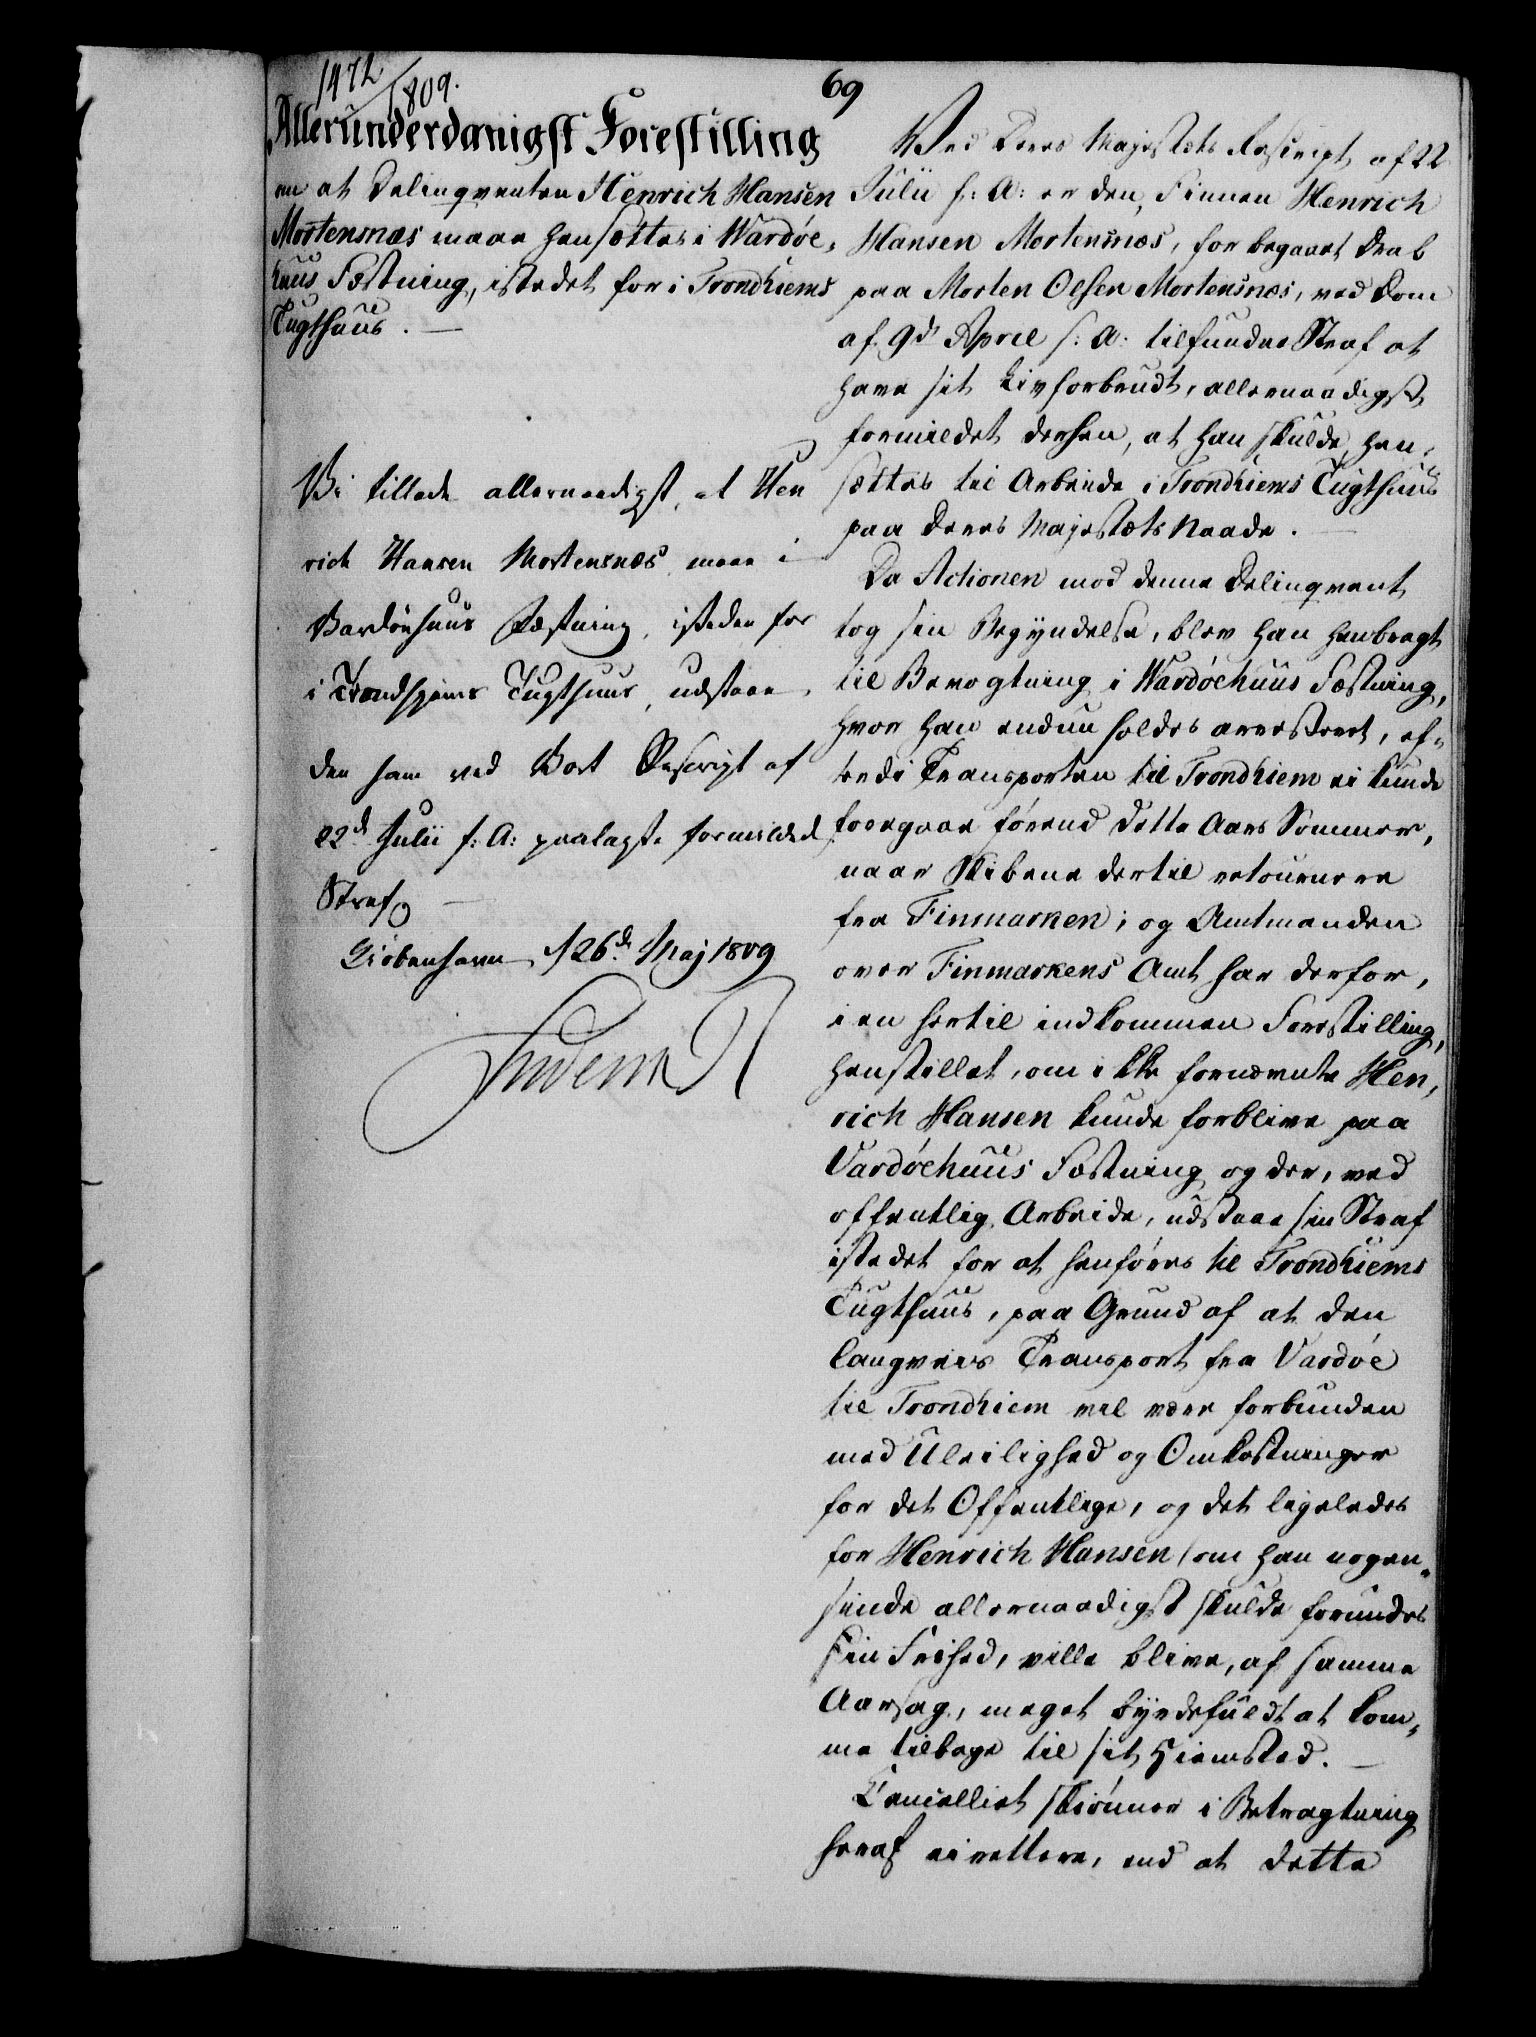 1472/1809.
69
Allerunderdanigst Forestilling
om at Delinqventen Henrich Hansen
Mortensnæs maae hensættes i Wardøe-
huus Fæstning, istedet for i Trondhiems
Tugthuus. —
Vi tillade allernaadigst, at Hen
rich Hansen Mortensnæs maae i
Vardöehuus Fæstning, isteden for
i Trondhjems Tugthuus, udstaae
den ham ved Vort Rescript af
22d Julii f: A: paalagte formildede
Straf. —
Kiöbenhavn, d 26d Maj 1809
Frederik R
Ved Deres Majestæts Rescript af 22
Julii f: A: er den, Finnen Henrich
Hansen Mortensnæs, for begaaet Drab
paa Morten Olsen Mortensnæs, ved Dom
af 9d April s: A: tilfundne Straf at
have sit Liv forbrudt, allernaadigst
formildet derhen, at han skulde hen-
sættes til Arbeide i Trondhiems Tugthuus
paa Deres Majestæts Naade. —
Da Actionen mod denne Delinqvent
tog sin Begyndelse, blev han henbragt
til Bevogtning i Wardøehuus Fæstning,
hvor han endnu holdes arresteret, ef-
terdi Transporten til Trondhiem ei kunde
foregaae førend dette Aars Sommer,
naar Skibene dertil retournere
fra Finmarken; og Amtmanden
over Finmarkens Amt har derfor,
i en hertil indkommen Forestilling,
henstillet, om ikke fornævnte Hen-
rich Hansen kunde forblive paa
Vardøehuus Fæstning og der, ved
offentlig Arbeide, udstaae sin Straf
istedet for at henføres til Trondhiems
Tugthuus, paa Grund af at den
langveis Transport fra Vardøe
til Trondhiem vil være forbunden
med Uleilighed og Omkostninger
for det Offentlige, og det ligeledes
for Henrich Hansen (om han nogen-
sinde allernaadigst skulde forundes
sin Frihed, ville blive, af samme
Aarsag, meget byrdefuldt at kom-
me tilbage til sit Hiemsted. —
Cancelliet skiønner i Betragtning
heraf ei rettere, end at dette